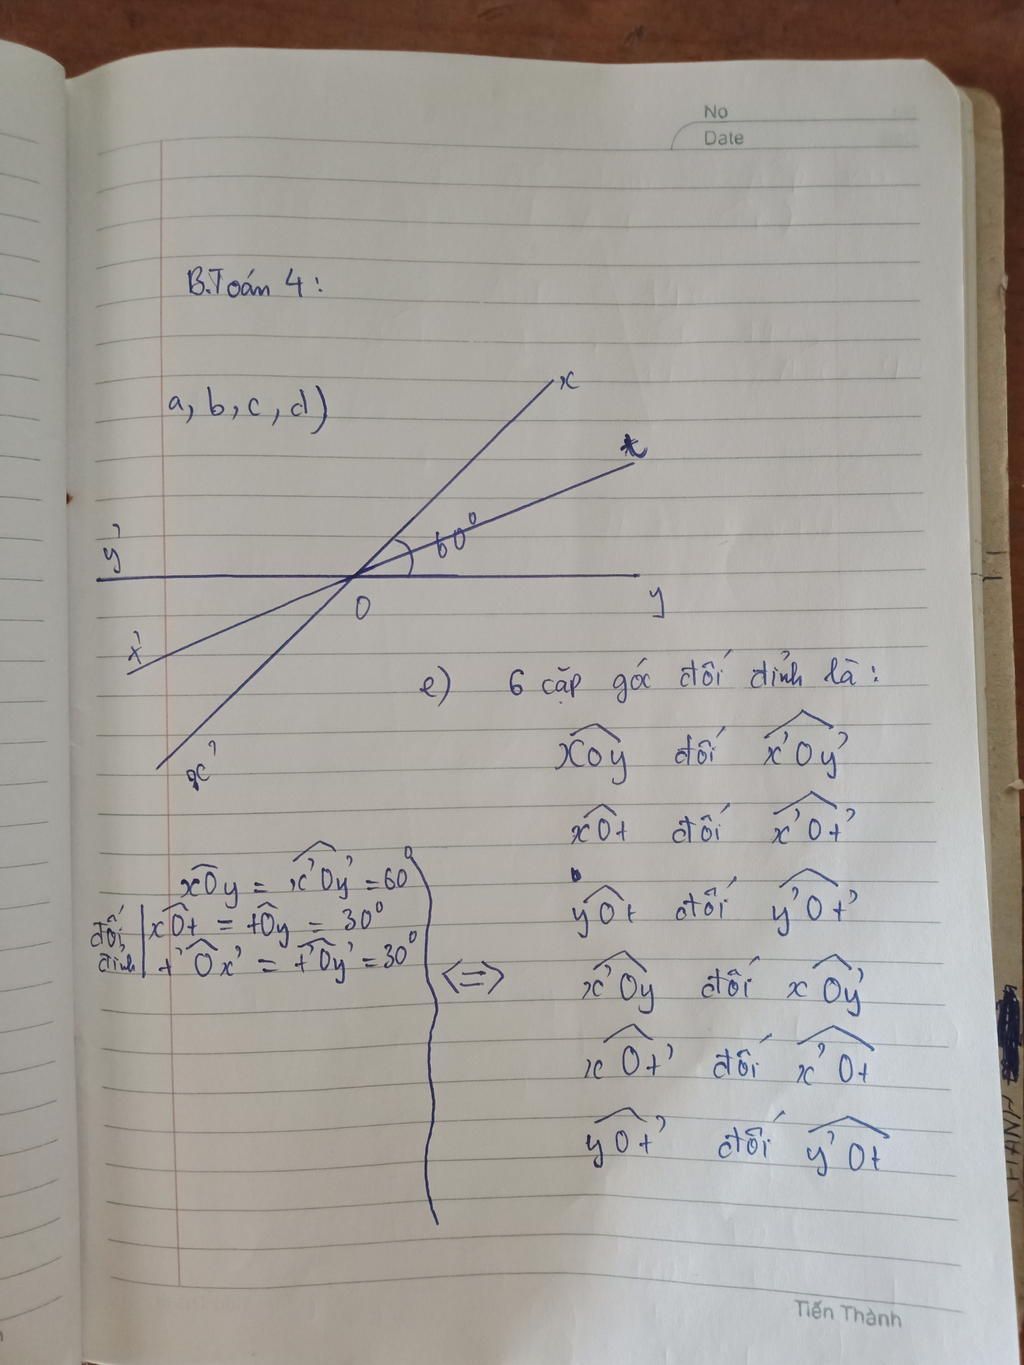 No
Date
B.Toán 4:
a, b, c, d)
x
t
60°
y'
O
y
t'
x'
e) 6 cặp góc đối đỉnh là:
xOy đối x'Oy'
xOt đối x'Ot'
yOt đối y'Ot'
x'Oy đối xOy'
xOt' đối x'Ot
yOt' đối y'Ot
xOy = x'Oy' = 60°
đối đỉnh
xOt = tOy = 30°
t'Ox' = t'Oy' = 30°
<=>
Tiến Thành